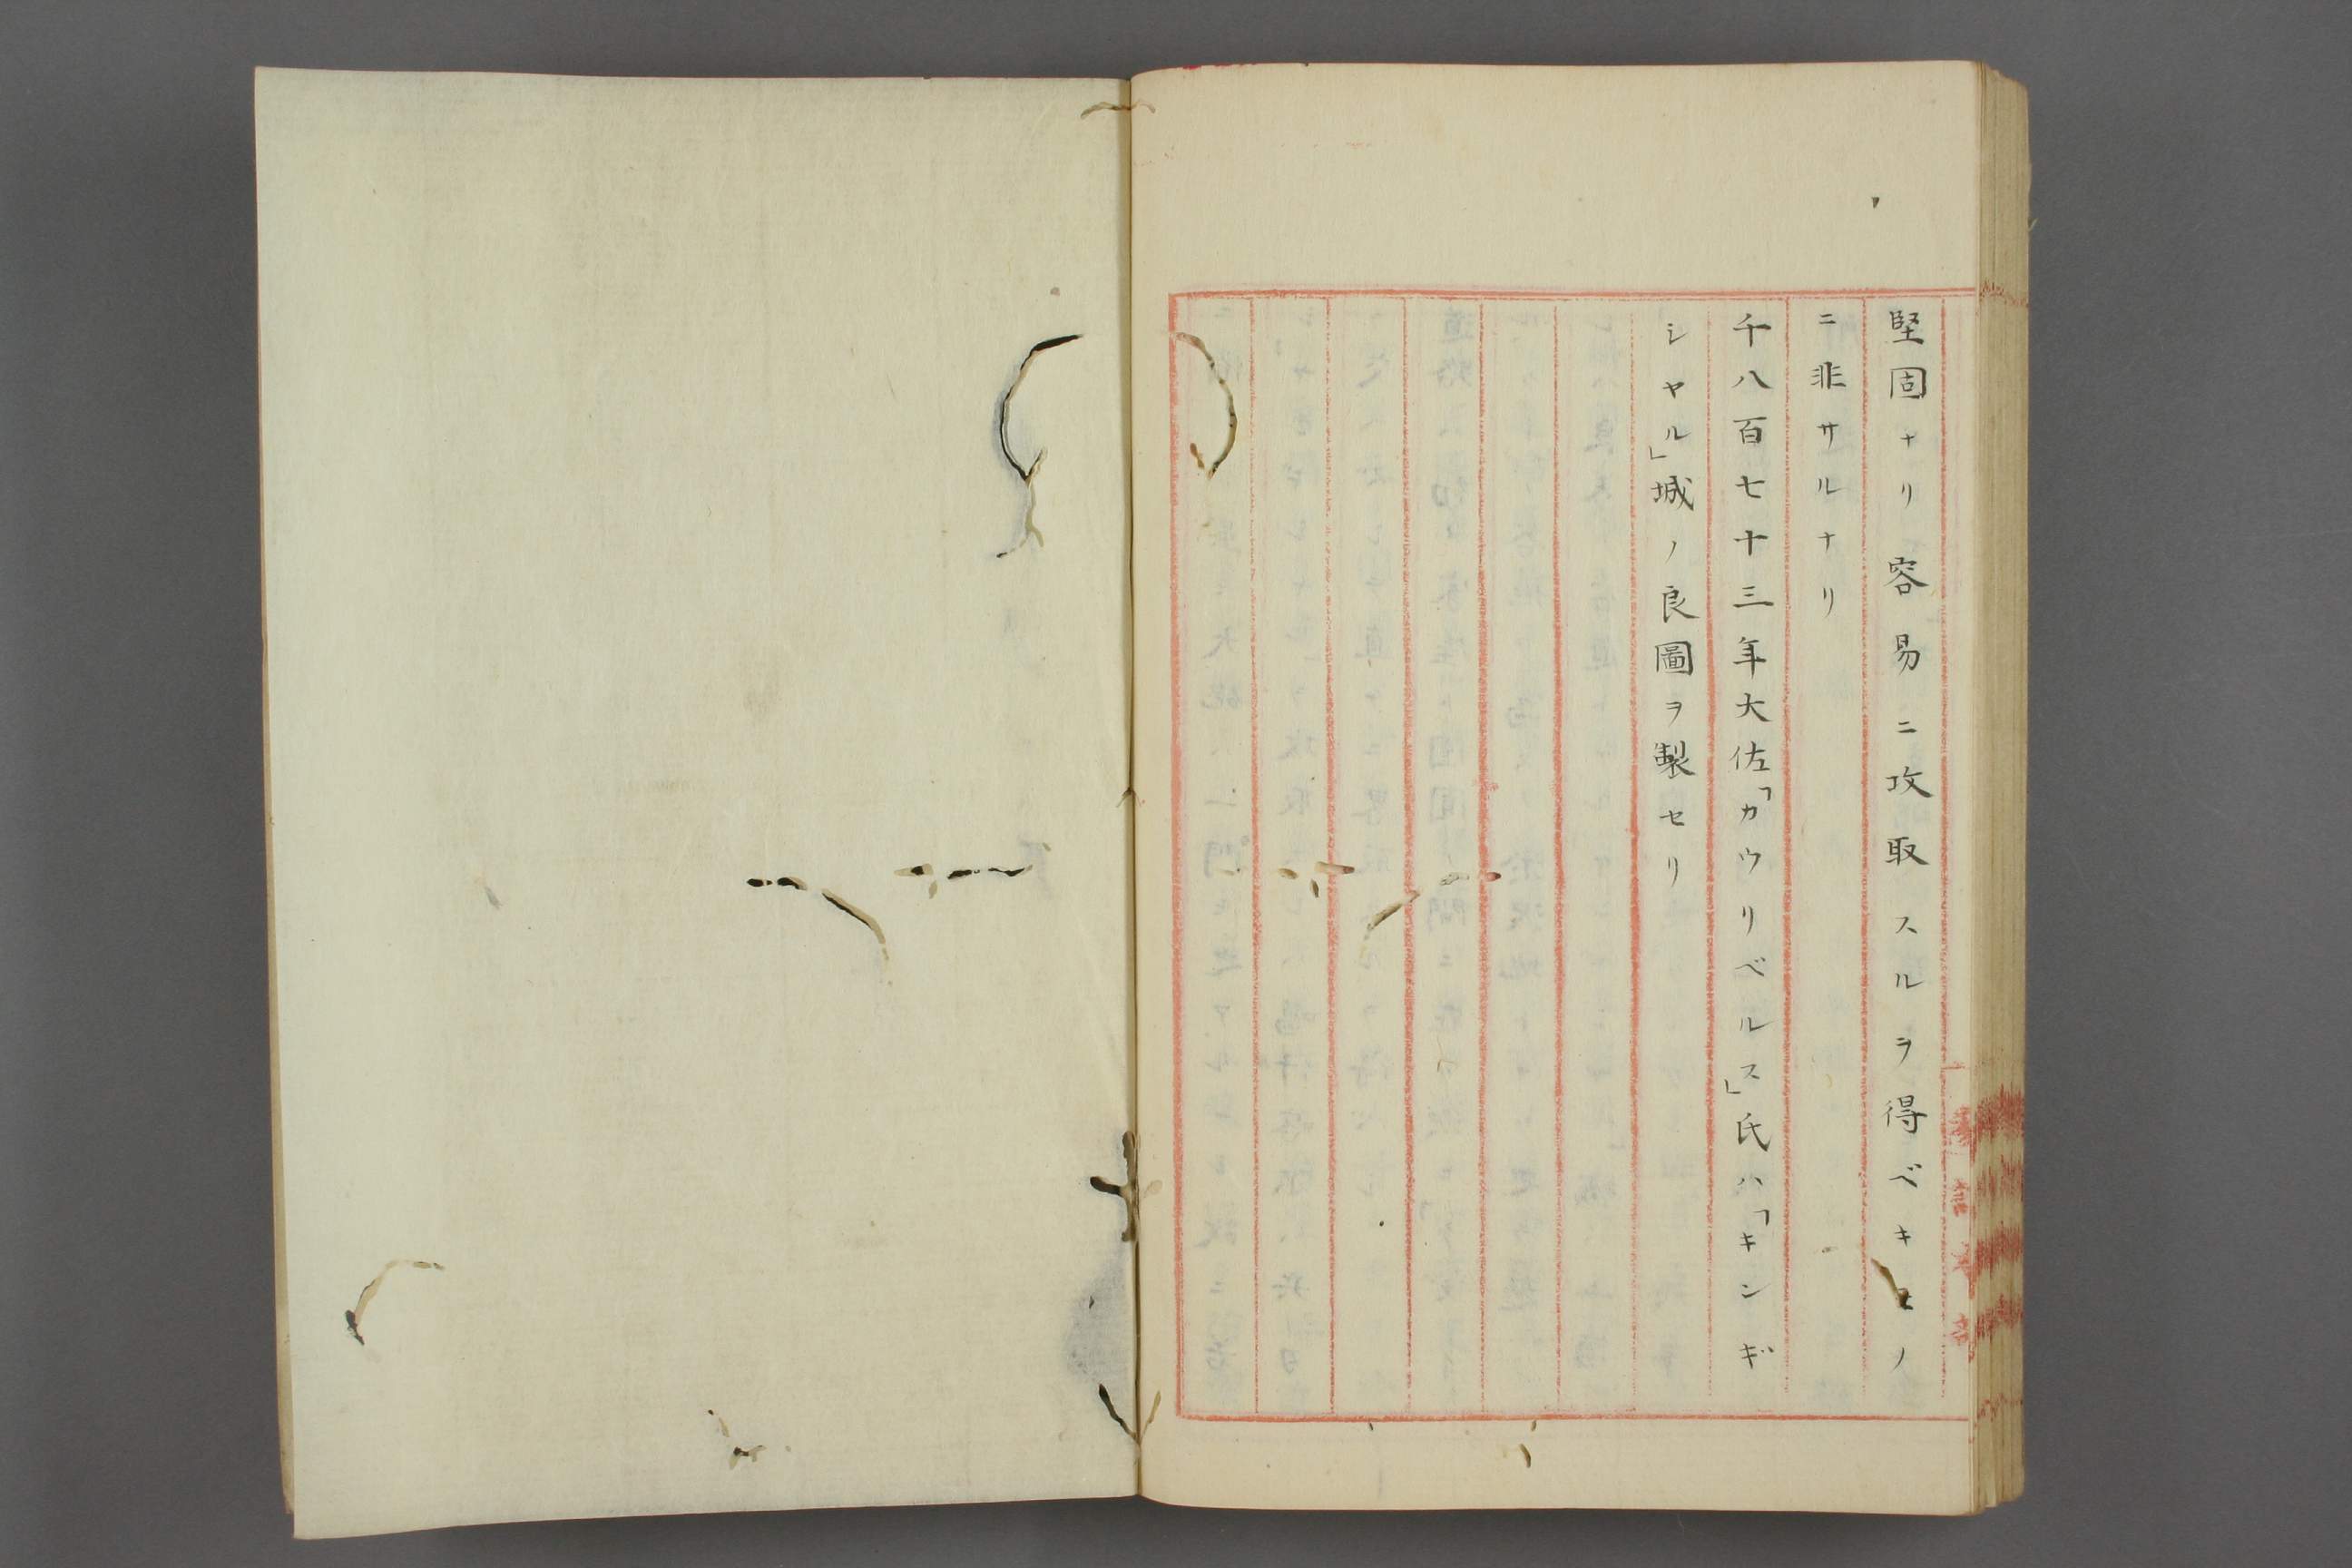 堅固ナリ容易ニ攻取スルヲ得ベキモノ
ニ非サルナリ
千八百七十三年大佐「カウリベルス」氏ハ「キンギ
シヤル」城ノ良圖ヲ製セリ